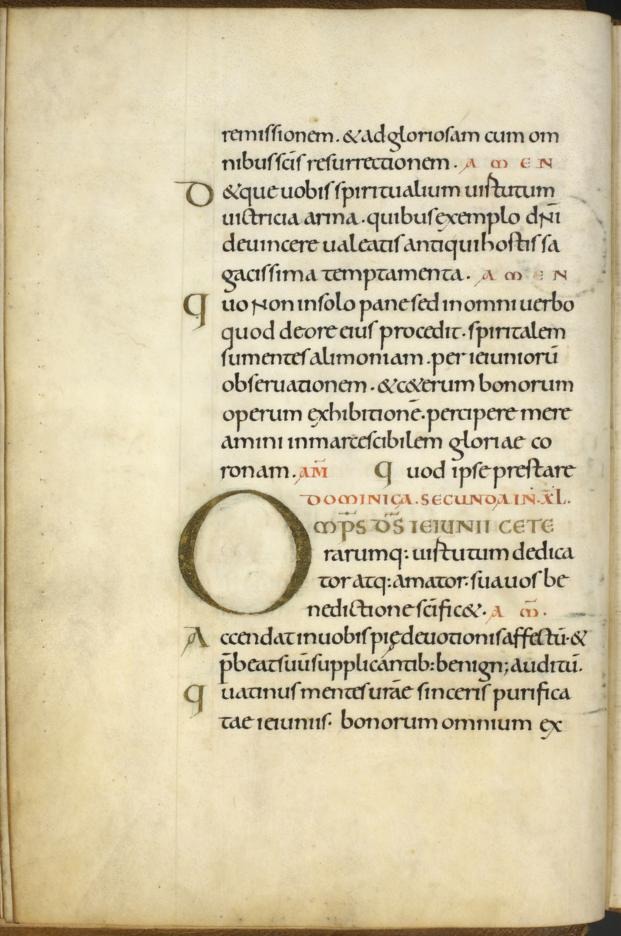 remissionem. & ad gloriosam cum om
nibus sc̄is resurrectionem. AMEN
D&que uobis spiritualium uirtutum
uictricia arma. quibus exemplo dn̄i
deuincere ualeatis antiqui hostis sa
gacissima temptamenta. AMEN
Quo non in solo pane sed in omni uerbo
quod de ore eius procedit. spiritalem
sumentes alimoniam. per ieiuniorū
obseruationem. & c&erum bonorum
operum exhibitionē. percipere mere
amini inmarcescibilem gloriae co
ronam. AM̄ Quod ipse prestare
DOMINICA. SECUNDA IN. X̄L.
OMP̄S D̄S IEIUNII CETE
rarumq: uirtutum dedica
tor atq: amator. sua uos be
nedictione sc̄ific&. A M̄.
Accendat in uobis pię deuotionis affectū. &
p̄beat suū supplicantib: benign; auditū.
Quatinus mentes ur̄ae sinceris purifica
tae ieiuniis. bonorum omnium ex